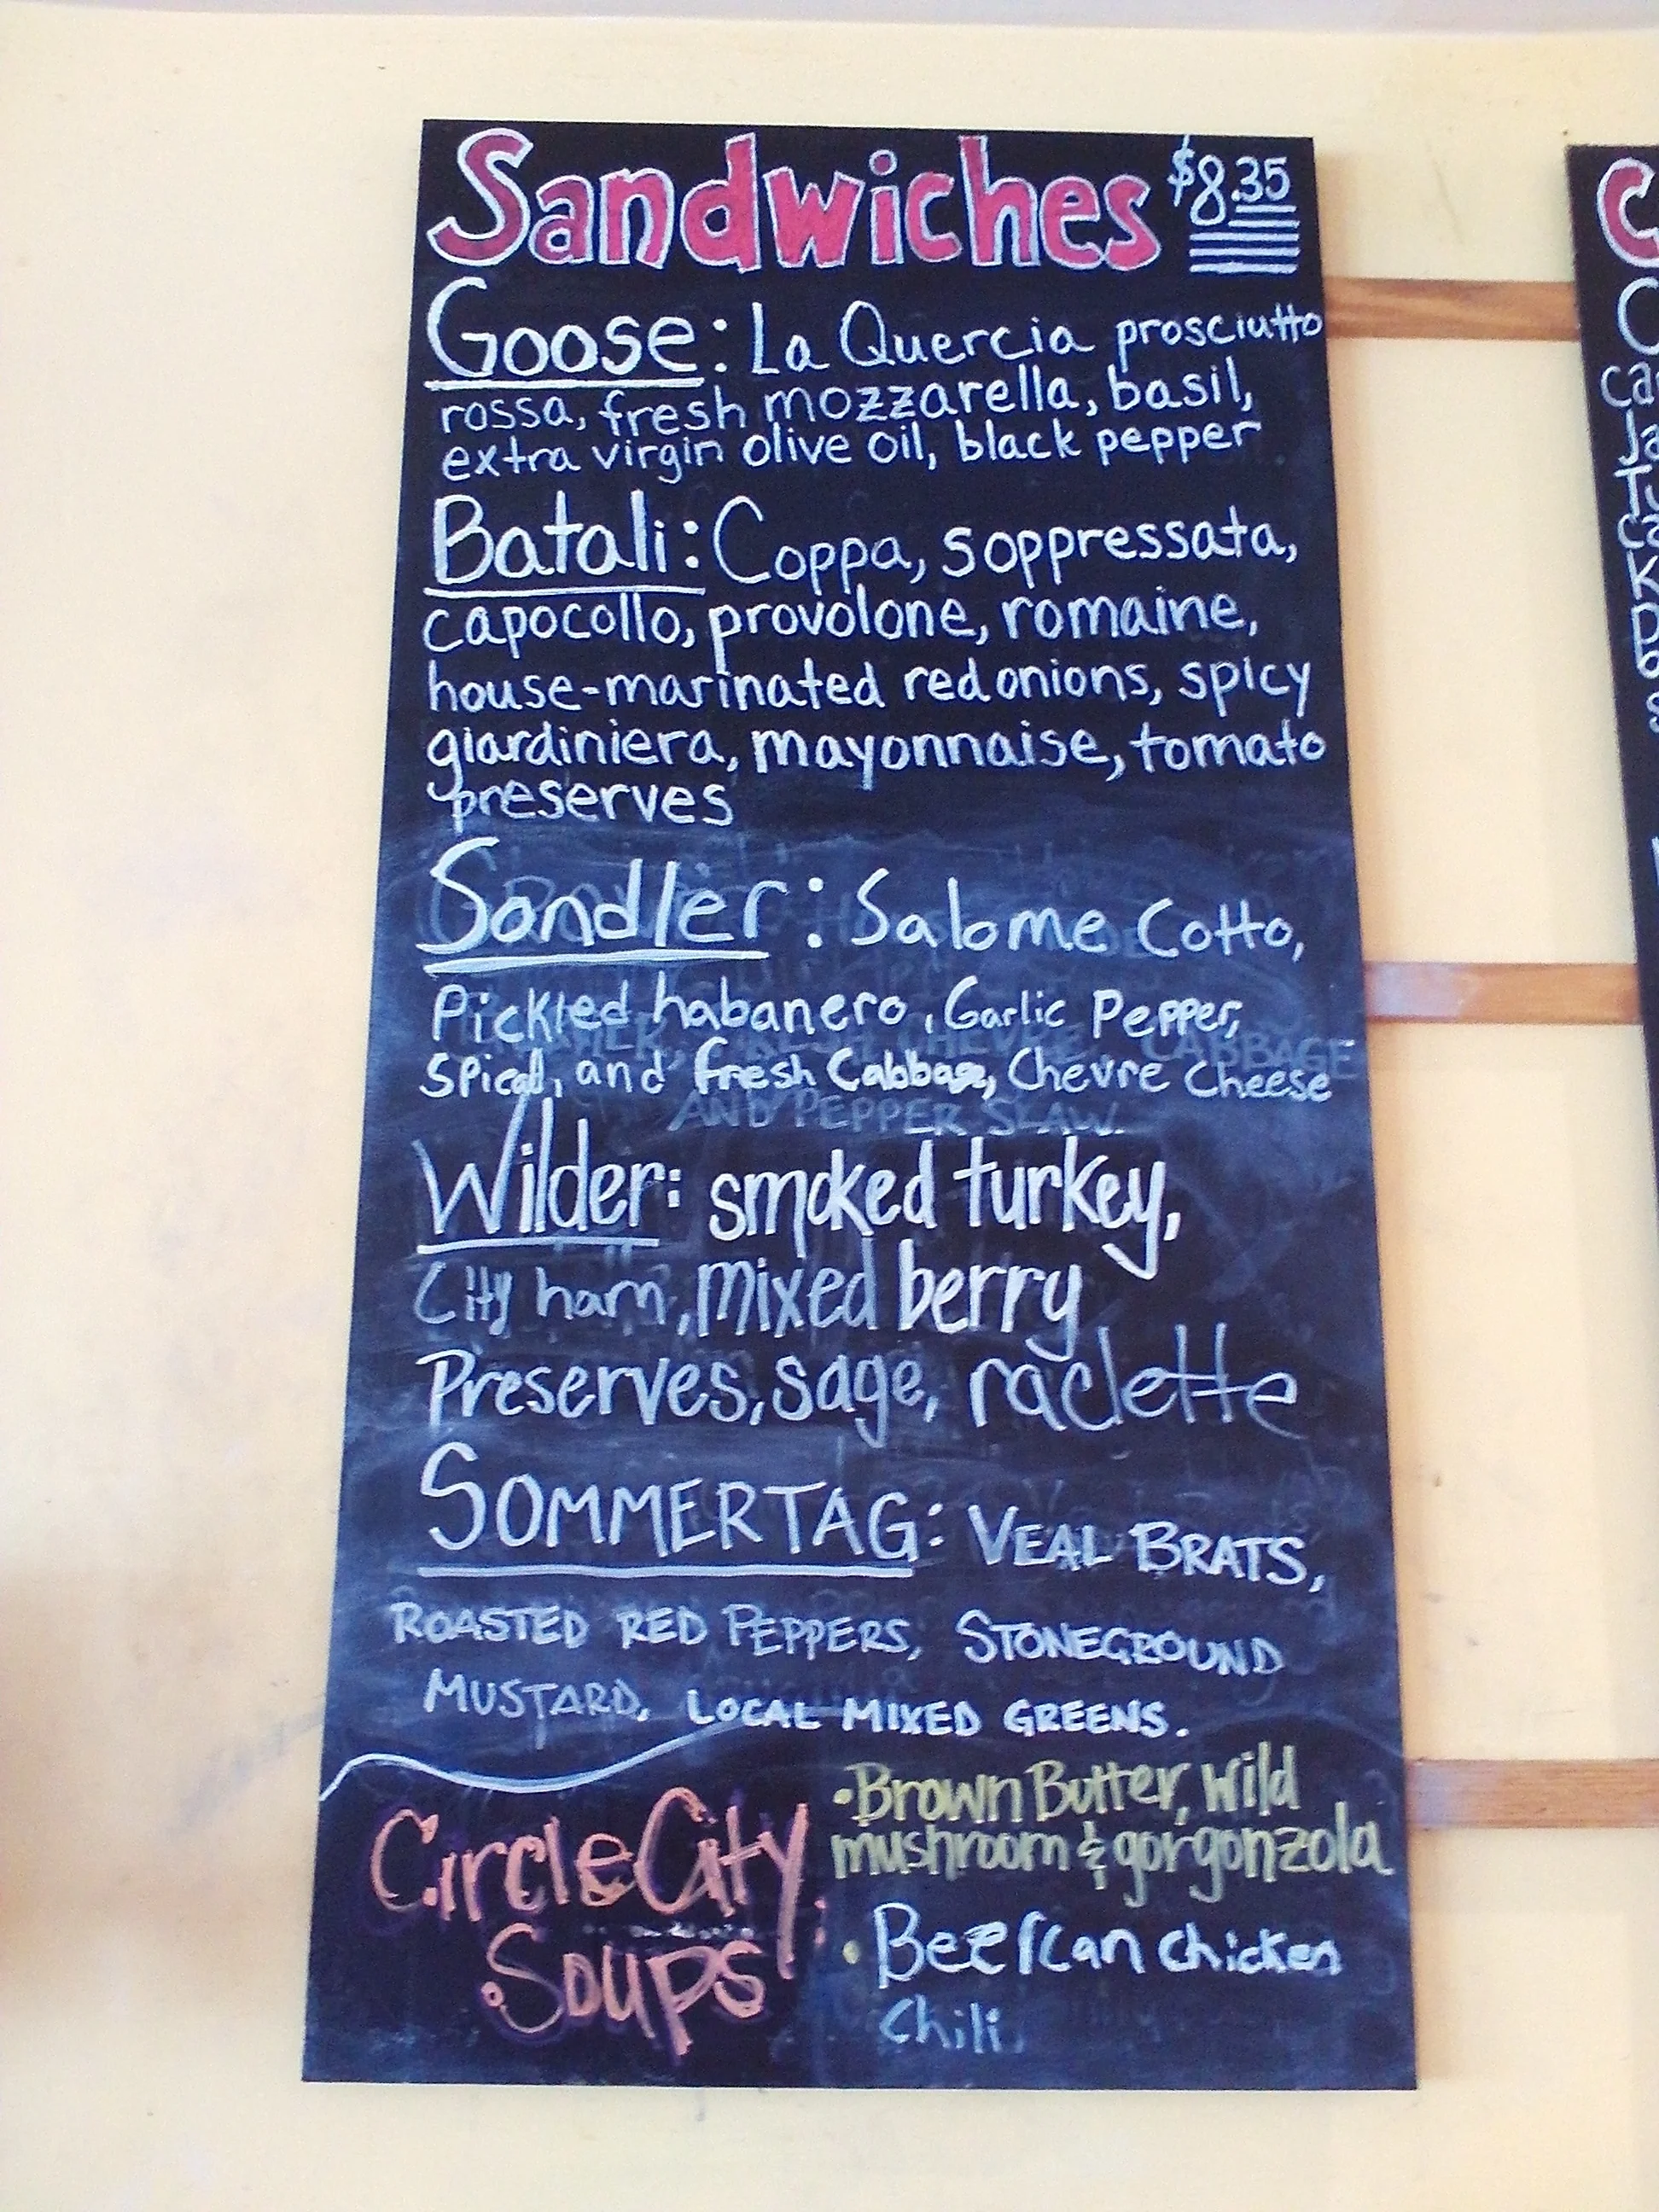 Sandwiches $8.35
Goose: La Quercia prosciutto
rossa, fresh mozzarella, basil,
extra virgin olive oil, black pepper
Batali: Coppa, soppressata,
capocollo, provolone, romaine,
house-marinated red onions, spicy
giardiniera, mayonnaise, tomato
preserves
Sandler: Salome Cotto,
Pickled habanero, Garlic Pepper,
and fresh Cabbage, Chevre Cheese
CABBAGE
AND PEPPER SLAW.
Wilder: smoked turkey,
City ham, mixed berry
Preserves, sage, raclette
SOMMERTAG: VEAL BRATS,
ROASTED RED PEPPERS, STONEGROUND
MUSTARD, LOCAL MIXED GREENS.
Circle City
Soups
• Brown Butter, wild
mushroom & gorgonzola
• Beer Can chicken
Chili